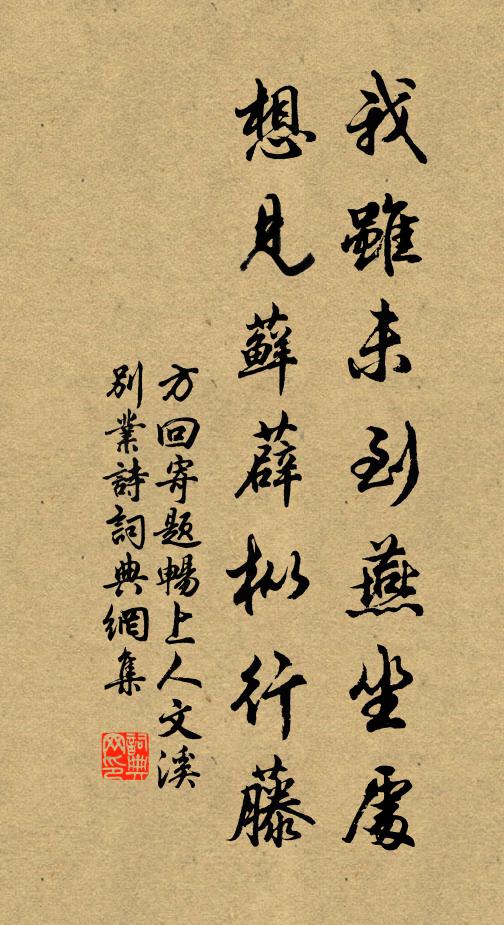 我雖未到燕坐處
想見蘚薜枞行藤
方回寄題暢上人文溪
別業詩詞典網集
詞典
网印